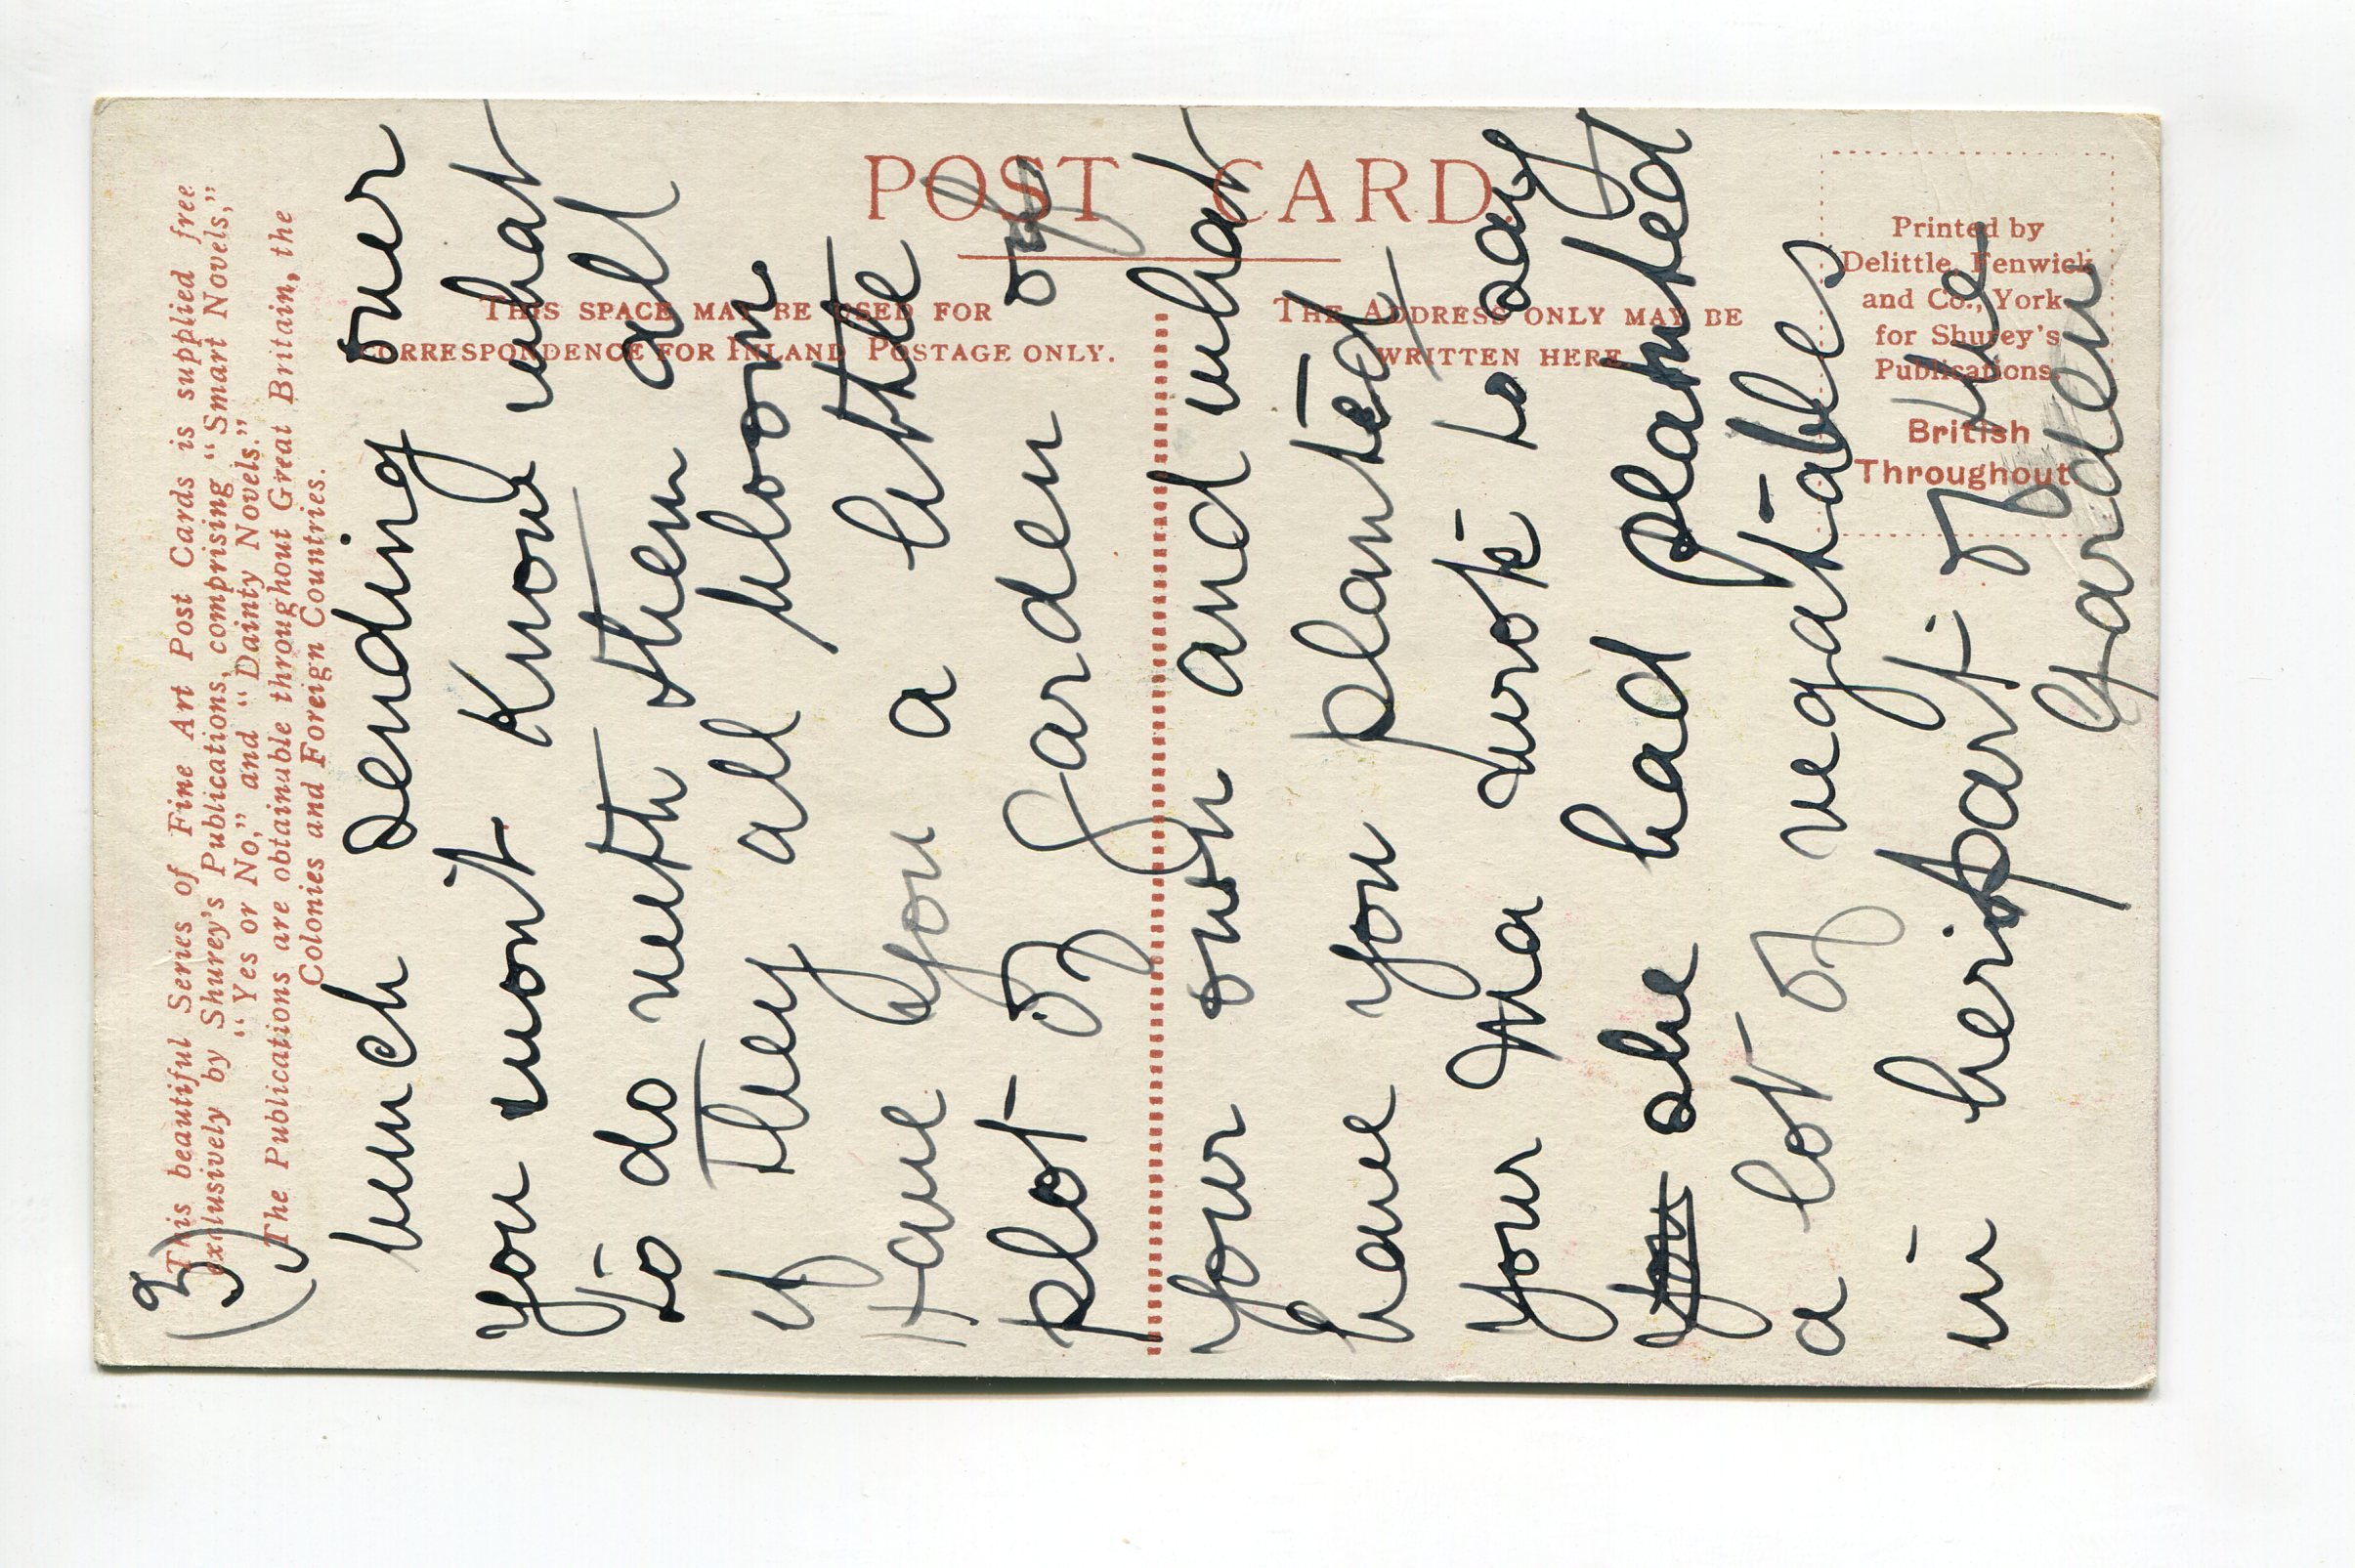 This beautiful Series of Fine Art Post Cards is supplied free
exclusively by Shurey's Publications, comprising "Smart Novels,"
"Yes or No," and "Dainty Novels."
The Publications are obtainable throughout Great Britain, the
Colonies and Foreign Countries.
POST CARD.
THIS SPACE MAY BE USED FOR
CORRESPONDENCE FOR INLAND POSTAGE ONLY.
THE ADDRESS ONLY MAY BE
WRITTEN HERE
Printed by
Delittle, Fenwick
and Co., York
for Shurey's
Publications
British
Throughout
bunch sending over
you wont know what
to do with them all
if they all bloom
Have you a little
plot of garden of
your own and what
have you planted
your Ma wrote to say
you she had planted
a lot of vegatables
in her part of the
Garden